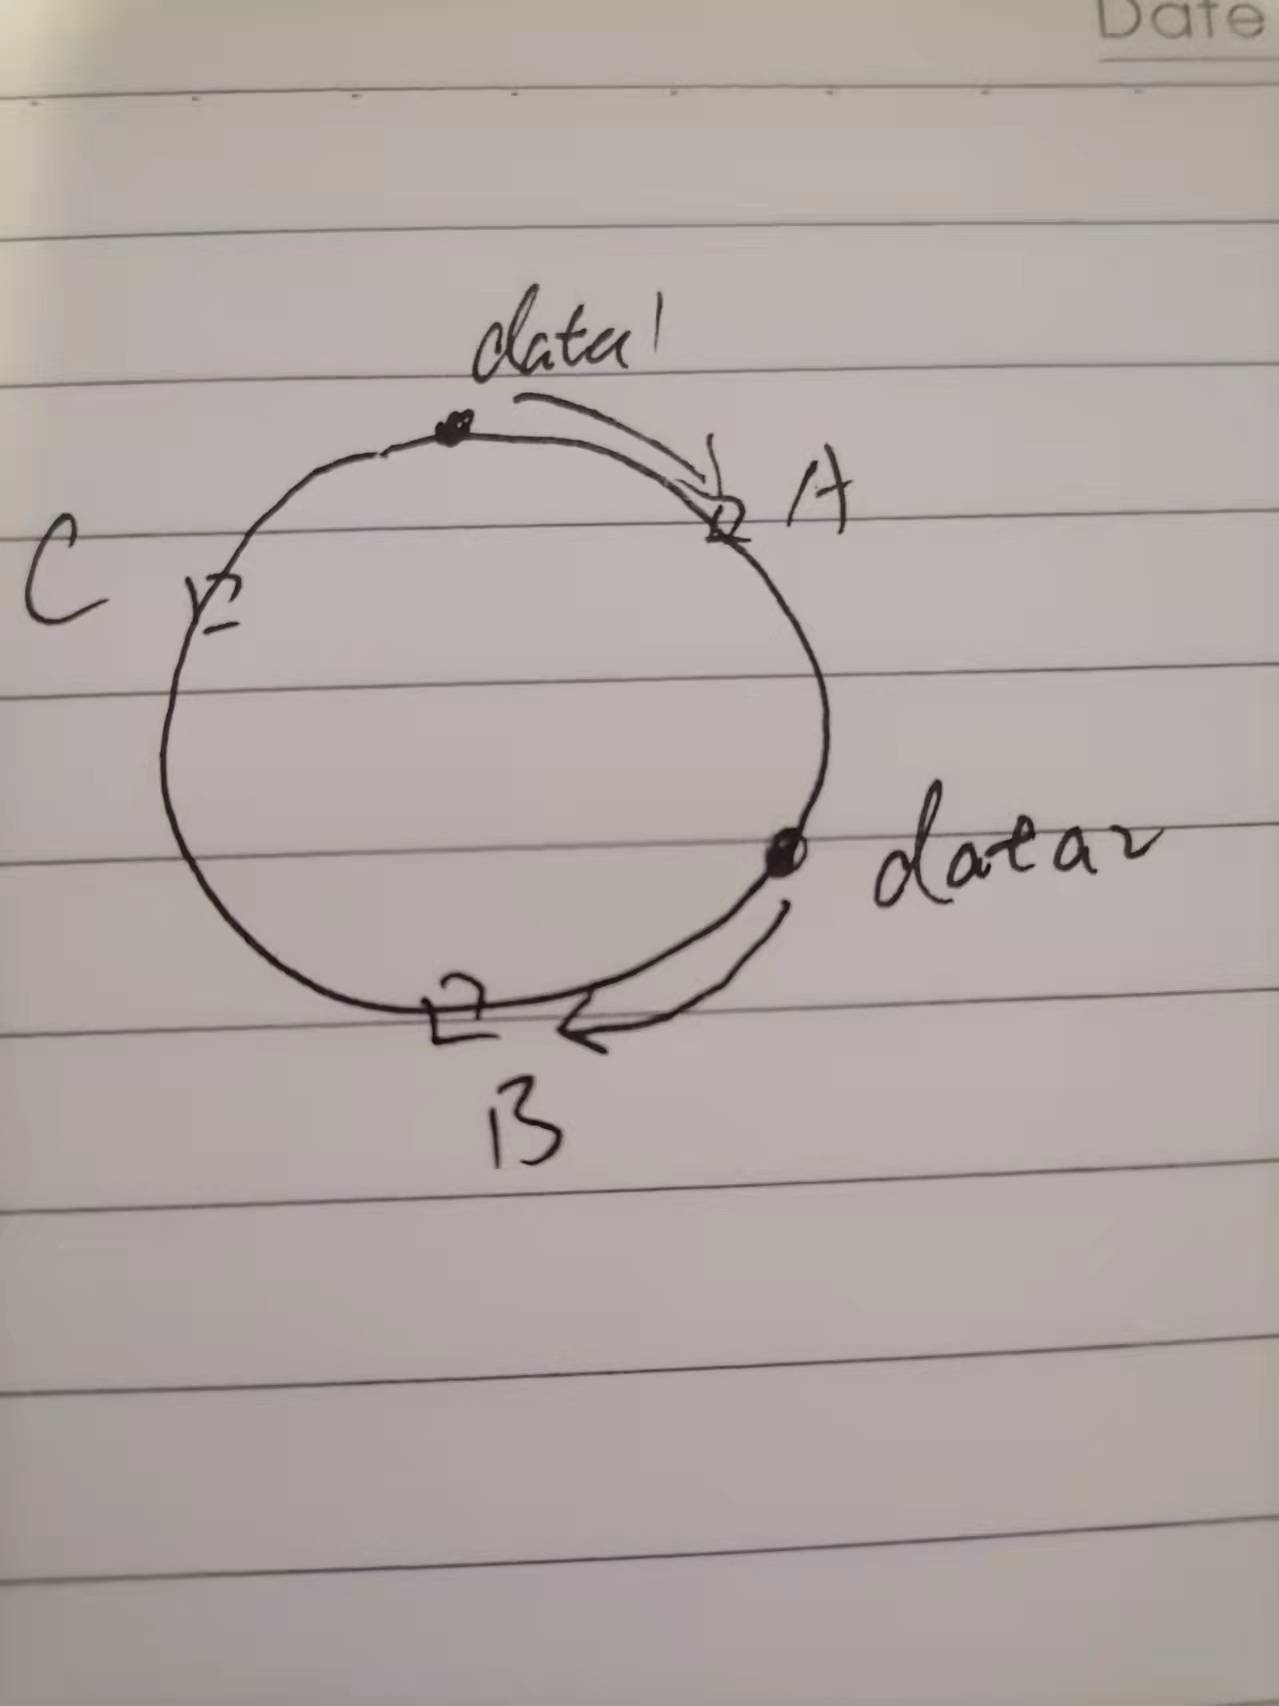 Date
data1
A
C
data2
B